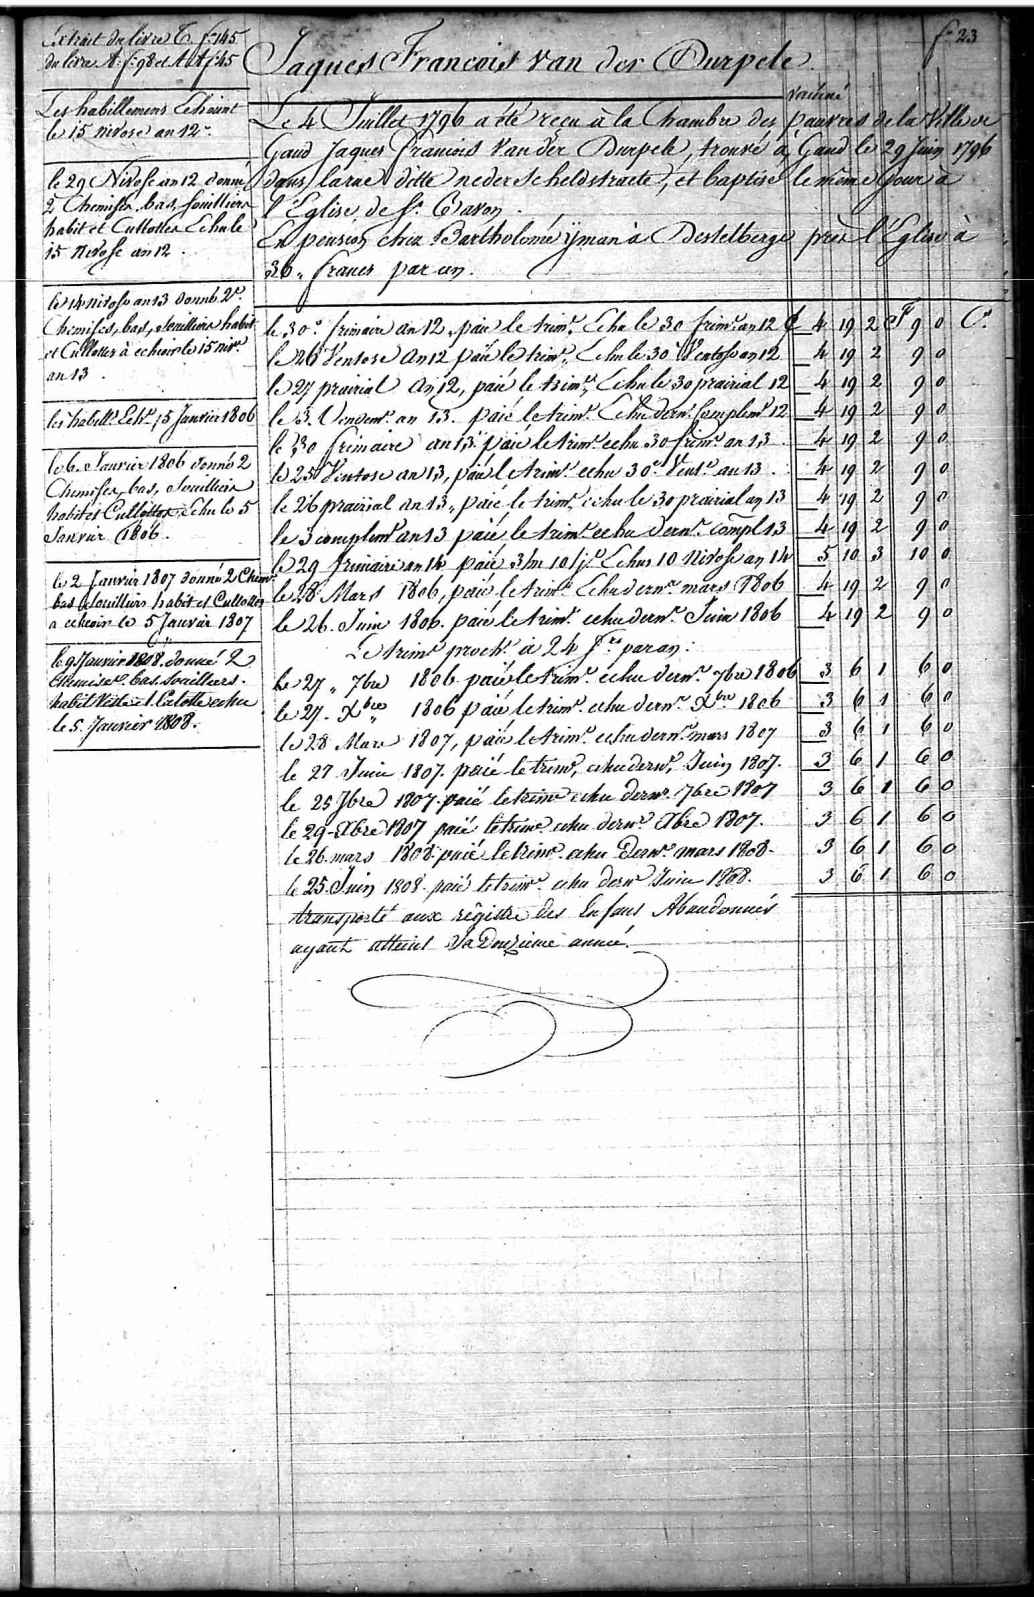 Extrait du livre C. f. 145
du livre A. f. 98 et AA f. 45
f. 23
Jaques Francois Van der Durpele.
vacciné
Les habillemens Echéant
le 15 nivose an 12.
le 29 Nivose an 12 donné
2 Chemises, bas, souilliers
habit et Cullottes Echu le
15 Nivose an 12.
le 14 nivose an 13 donné 2
Chemises, bas, souilliers habit
et Cullottes à echeoir le 15 niv.
an 13.
les habill. Ech. 15 Janvier 1806
le 6 Janvier 1806 donné 2
Chemises, bas, souilliers
habit et Cullottes Echu le 5
Janvier 1806.
le 2 Janvier 1807 donné 2 Chem.
bas souilliers habit et Cullottes
a echeoir le 5 Janvier 1807
le 9 Janvier 1808. donné 2
chemises. bas. souilliers.
habit veste 1. Culotte echu
le 5. Janvier 1808.
Le 4 Juillet 1796 a été reçu à la Chambre des pauvres de la Ville de
Gand Jaques Francois Van der Durpele, trouvé à Gand le 29 Juin 1796
dans la rue ditte neder scheldstraete, et baptisé le même jour à
l'Eglise de St. Bavon.
En pension chez Bartholomé ÿman à Destelberge près l'Eglise à
36 „ francs par an.
le 30. frimaire an 12, paié le trim. Echu le 30 frim. an 12 £ 4 19 2 F 9 0 C.
le 26 Ventose an 12 paié le trim. Echu le 30 Ventose an 12 4 19 2 9 0
le 27 prairial an 12, paié le trim. Echu le 30 prairial 12 4 19 2 9 0
le 3. Vendem. an 13. paié le trim. Echu dern. Complem. 12 4 19 2 9 0
le 30 frimaire an 13 paié le trim. echu 30 frim. an 13 4 19 2 9 0
le 25 Ventose an 13, paié le trim. echu 30. Vent. an 13 4 19 2 9 0
le 26 prairial an 13, paié le trim. echu le 30 prairial an 13 4 19 2 9 0
le 3 complem. an 13 paié le trim. echu dern. compl. 13 4 19 2 9 0
le 29 frimaire an 14 paié 3 m 10 j. Echus 10 Nivose an 14 5 10 3 10 0
le 28 Mars 1806, paié le trim. Echu dern. mars 1806 4 19 2 9 0
le 26. Juin 1806. paié le trim. echu dern. Juin 1806 4 19 2 9 0
Le trim. proch. à 24 f. par an.
le 27 „ 7bre 1806 paié le trim. echu dern. 7bre 1806 3 6 1 6 0
le 27. Xbre 1806 paié le trim. echu dern. Xbre 1806 3 6 1 6 0
le 28 Mars 1807, paié le trim. echu dern. mars 1807 3 6 1 6 0
le 27 Juin 1807. paié le trim. echu dern. Juin 1807. 3 6 1 6 0
le 25 7bre 1807. paié le trim. echu dern. 7bre 1807 3 6 1 6 0
le 29. Xbre 1807 paié le trim. echu dern. Xbre 1807. 3 6 1 6 0
le 26. mars 1808. paié le trim. echu dern. mars 1808. 3 6 1 6 0
le 25. Juin 1808. paié le trim. echu dern. Juin 1808. 3 6 1 6 0
transporté aux régistre des Enfans Abandonnés
ayant atteint sa Douzieme année.